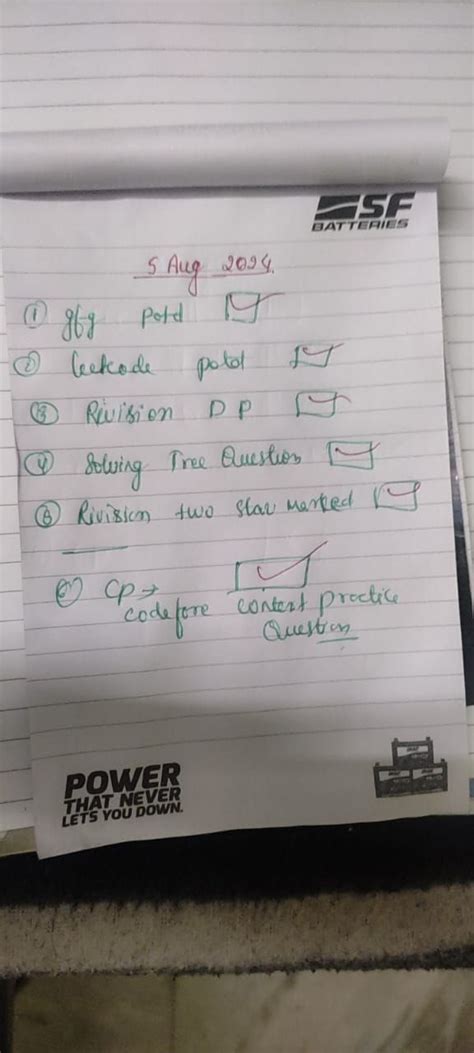 SF
BATTERIES
5 Aug 2024.
① gfg potd
② leetcode potd
③ Rivision DP
④ Solving Tree Question
⑤ Rivision two star marked
⑥ CP →
codefore contest practice
Question
POWER
THAT NEVER
LETS YOU DOWN.